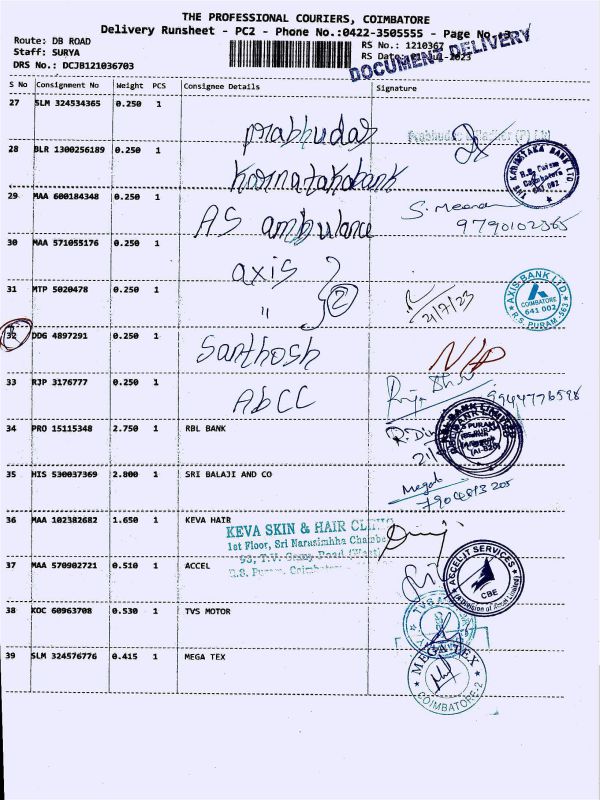 THE PROFESSIONAL COURIERS, COIMBATORE
Delivery Runsheet - PC2 - Phone No.:0422-3505555 - Page No.:3
Route: DB ROAD
RS No.: 1210367
Staff: SURYA
RS Date: Jul-2023
DOCUMENT DELIVERY
DRS No.: DCJB121036703
S No Consignment No Weight PCS Consignee Details Signature
27 SLM 324534365 0.250 1
prabhudas
28 BLR 1300256189 0.250 1
THE KARNATAKA BANK LTD
R.S. Puram
Coimbatore
641 002
Karnatakabank
29 MAA 600184348 0.250 1
AS ambulance
S. Meena
9790102365
30 MAA 571055176 0.250 1
axis
31 MTP 5020478 0.250 1
" 2
21/7/23
AXIS BANK LTD.
COIMBATORE
641 002
R.S. PURAM
32 DDG 4897291 0.250 1
Santhosh
N/P
33 RJP 3176777 0.250 1
AbCC
9944776598
34 PRO 15115348 2.750 1 RBL BANK
35 HIS 530037369 2.800 1 SRI BALAJI AND CO
Megal
36 MAA 102382682 1.650 1 KEVA HAIR
KEVA SKIN & HAIR CLINIC
1st Floor, Sri Narasimhha Chambe
37 MAA 570902721 0.510 1 ACCEL
ACCEL IT SERVICES
(A Division of Accel Limited)
CBE
38 KOC 60963708 0.530 1 TVS MOTOR
39 SLM 324576776 0.415 1 MEGA TEX
MEGA TEX
COIMBATORE-2